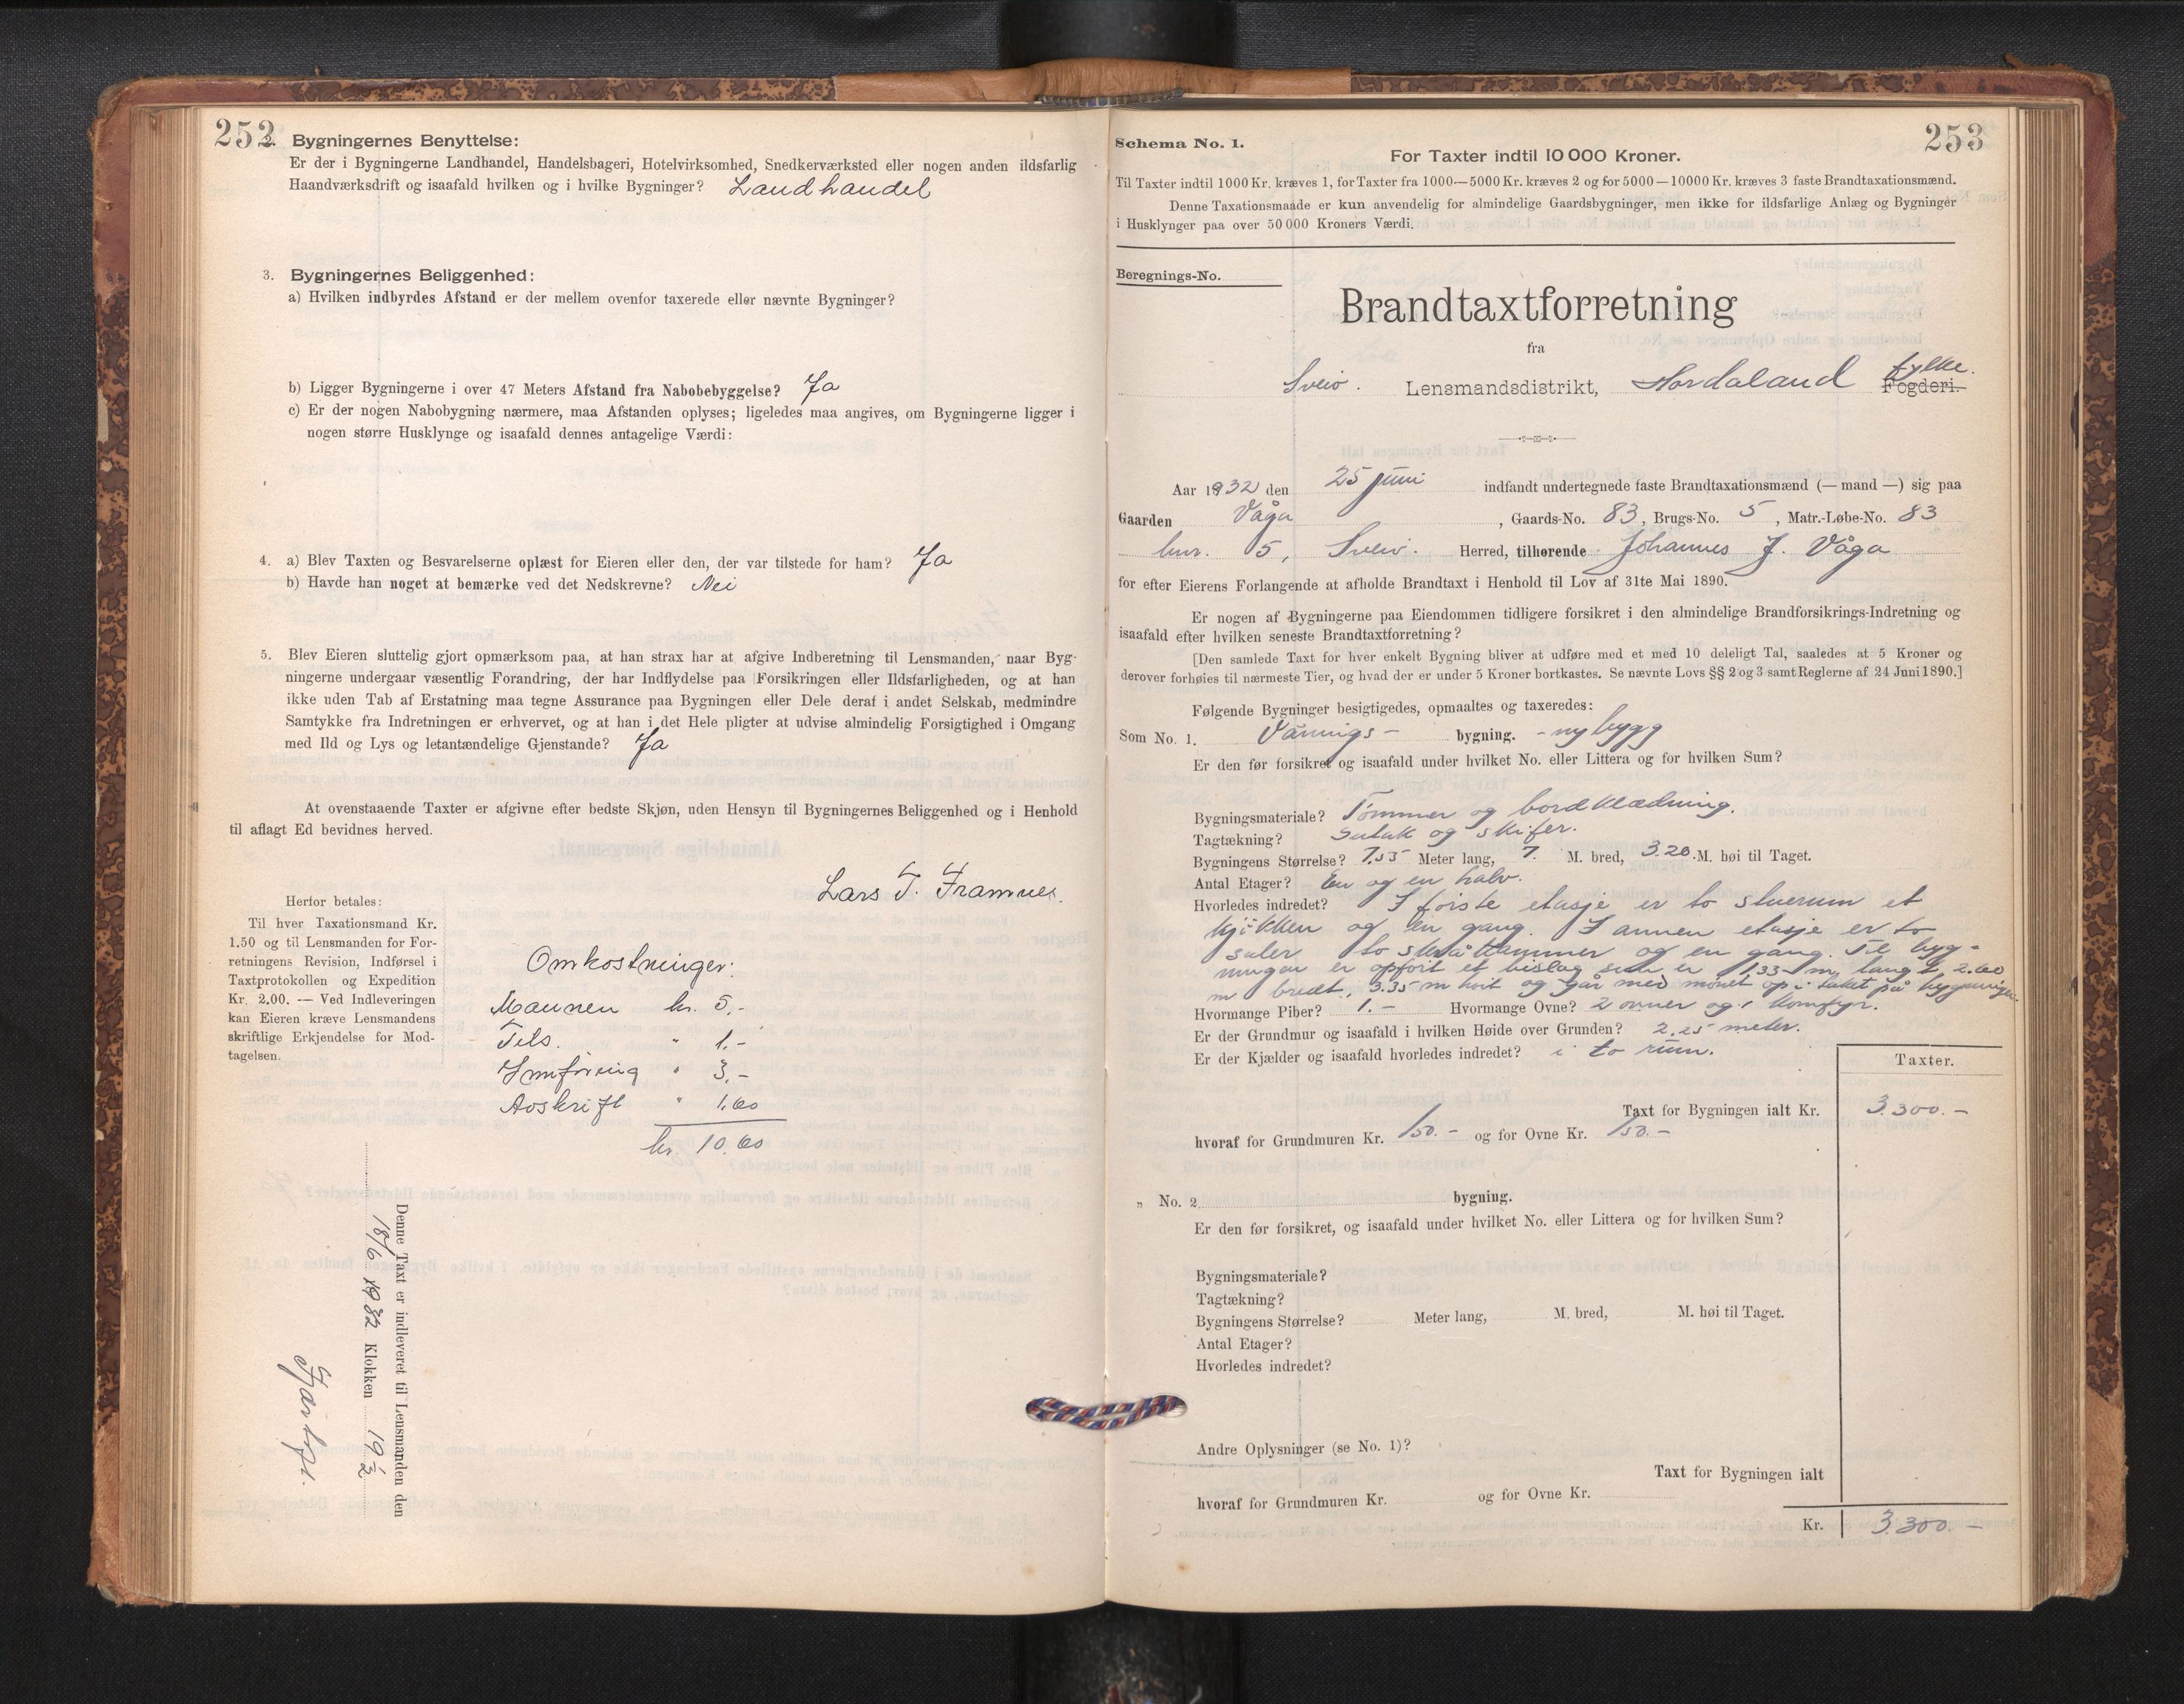 252
2. Bygningernes Benyttelse:
Er der i Bygningerne Landhandel, Handelsbageri, Hotelvirksomhed, Snedkerværksted eller nogen anden ildsfarlig
Haandværksdrift og isaafald hvilken og i hvilke Bygninger? Landhandel
3. Bygningernes Beliggenhed:
a) Hvilken indbyrdes Afstand er der mellem ovenfor taxerede eller nævnte Bygninger?
b) Ligger Bygningerne i over 47 Meters Afstand fra Nabobebyggelse? Ja
c) Er der nogen Nabobygning nærmere, maa Afstanden oplyses; ligeledes maa angives, om Bygningerne ligger i
nogen større Husklynge og isaafald dennes antagelige Værdi:
4. a) Blev Taxten og Besvarelserne oplæst for Eieren eller den, der var tilstede for ham? Ja
b) Havde han noget at bemærke ved det Nedskrevne? Nei
5. Blev Eieren sluttelig gjort opmærksom paa, at han strax har at afgive Indberetning til Lensmanden, naar Byg-
ningerne undergaar væsentlig Forandring, der har Indflydelse paa Forsikringen eller Ildsfarligheden, og at han
ikke uden Tab af Erstatning maa tegne Assurance paa Bygningen eller Dele deraf i andet Selskab, medmindre
Samtykke fra Indretningen er erhvervet, og at han i det Hele pligter at udvise almindelig Forsigtighed i Omgang
med Ild og Lys og letantændelige Gjenstande? Ja
At ovenstaaende Taxter er afgivne efter bedste Skjøn, uden Hensyn til Bygningernes Beliggenhed og i Henhold
til aflagt Ed bevidnes herved.
Lars T. Framnes.
Herfor betales:
Til hver Taxationsmand Kr.
1,50 og til Lensmanden for For-
retningens Revision, Indførsel i
Taxtprotokollen og Expedition
Kr. 2,00. — Ved Indleveringen
kan Eieren kræve Lensmandens
skriftlige Erkjendelse for Mod-
tagelsen.
Omkostninger:
Mannen kr. 5,-
Tils. " 1.-
Innføring " 3,-
Avskrift " 1.60
kr. 10.60
Denne Taxt er indleveret til Lensmanden den
18/6 1932 Klokken 19 1/2
253
Schema No. 1.
For Taxter indtil 10 000 Kroner.
Til Taxter indtil 1000 Kr. kræves 1, for Taxter fra 1000—5000 Kr. kræves 2 og for 5000—10000 Kr. kræves 3 faste Brandtaxationsmænd.
Denne Taxationsmaade er kun anvendelig for almindelige Gaardsbygninger, men ikke for ildsfarlige Anlæg og Bygninger
i Husklynger paa over 50 000 Kroners Værdi.
Beregnings-No.
Brandtaxtforretning
fra
Sveio. Lensmandsdistrikt, Hordaland fylke. Fogderi.
Aar 1932 den 25 juni indfandt undertegnede faste Brandtaxationsmænd (— mand —) sig paa
Gaarden Våga, Gaards-No. 83, Brugs-No. 5, Matr.-Løbe-No. 83
bnr. 5, Sveio. Herred, tilhørende Johannes J. Våga
for efter Eierens Forlangende at afholde Brandtaxt i Henhold til Lov af 31te Mai 1890.
Er nogen af Bygningerne paa Eiendommen tidligere forsikret i den almindelige Brandforsikrings-Indretning og
isaafald efter hvilken seneste Brandtaxtforretning?
[Den samlede Taxt for hver enkelt Bygning bliver at udføre med et med 10 deleligt Tal, saaledes at 5 Kroner og
derover forhøies til nærmeste Tier, og hvad der er under 5 Kroner bortkastes. Se nævnte Lovs §§ 2 og 3 samt Reglerne af 24 Juni 1890.]
Følgende Bygninger besigtigedes, opmaaltes og taxeredes:
Som No. 1. Vånings- bygning. - nybygg
Er den før forsikret og isaafald under hvilket No. eller Littera og for hvilken Sum?
Bygningsmateriale? Tømmer og bordklædning.
Tagtækning? sutak og skifer.
Bygningens Størrelse? 7,55 Meter lang, 7. M. bred, 3.20 M. høi til Taget.
Antal Etager? En og en halv.
Hvorledes indredet? I første etasje er to stuerum et
kjøkken og en gang. I annen etasje er to
saler to skråkammer og en gang. Til byg-
ningen er opført et bislag som er 1,35 m. langt, 2.60
m bredt, 3.35 m høit og går med mønet op i taket på bygningen.
Hvormange Piber? 1.- Hvormange Ovne? 2 ovner og 1 komfyr.
Er der Grundmur og isaafald i hvilken Høide over Grunden? 2.25 meter.
Er der Kjælder og isaafald hvorledes indredet? i to rum.
Taxter.
Taxt for Bygningen ialt Kr. 3.300.-
hvoraf for Grundmuren Kr. 150.- og for Ovne Kr. 150.-
„ No. 2 bygning.
Er den før forsikret, og isaafald under hvilket No. eller Littera og for hvilken Sum?
Bygningsmateriale?
Tagtækning?
Bygningens Størrelse? Meter lang, M. bred, M. høi til Taget.
Antal Etager?
Hvorledes indredet?
Andre Oplysninger (se No. 1)?
Taxt for Bygningen ialt
hvoraf for Grundmuren Kr. og for Ovne Kr.
Kr. 3.300.-